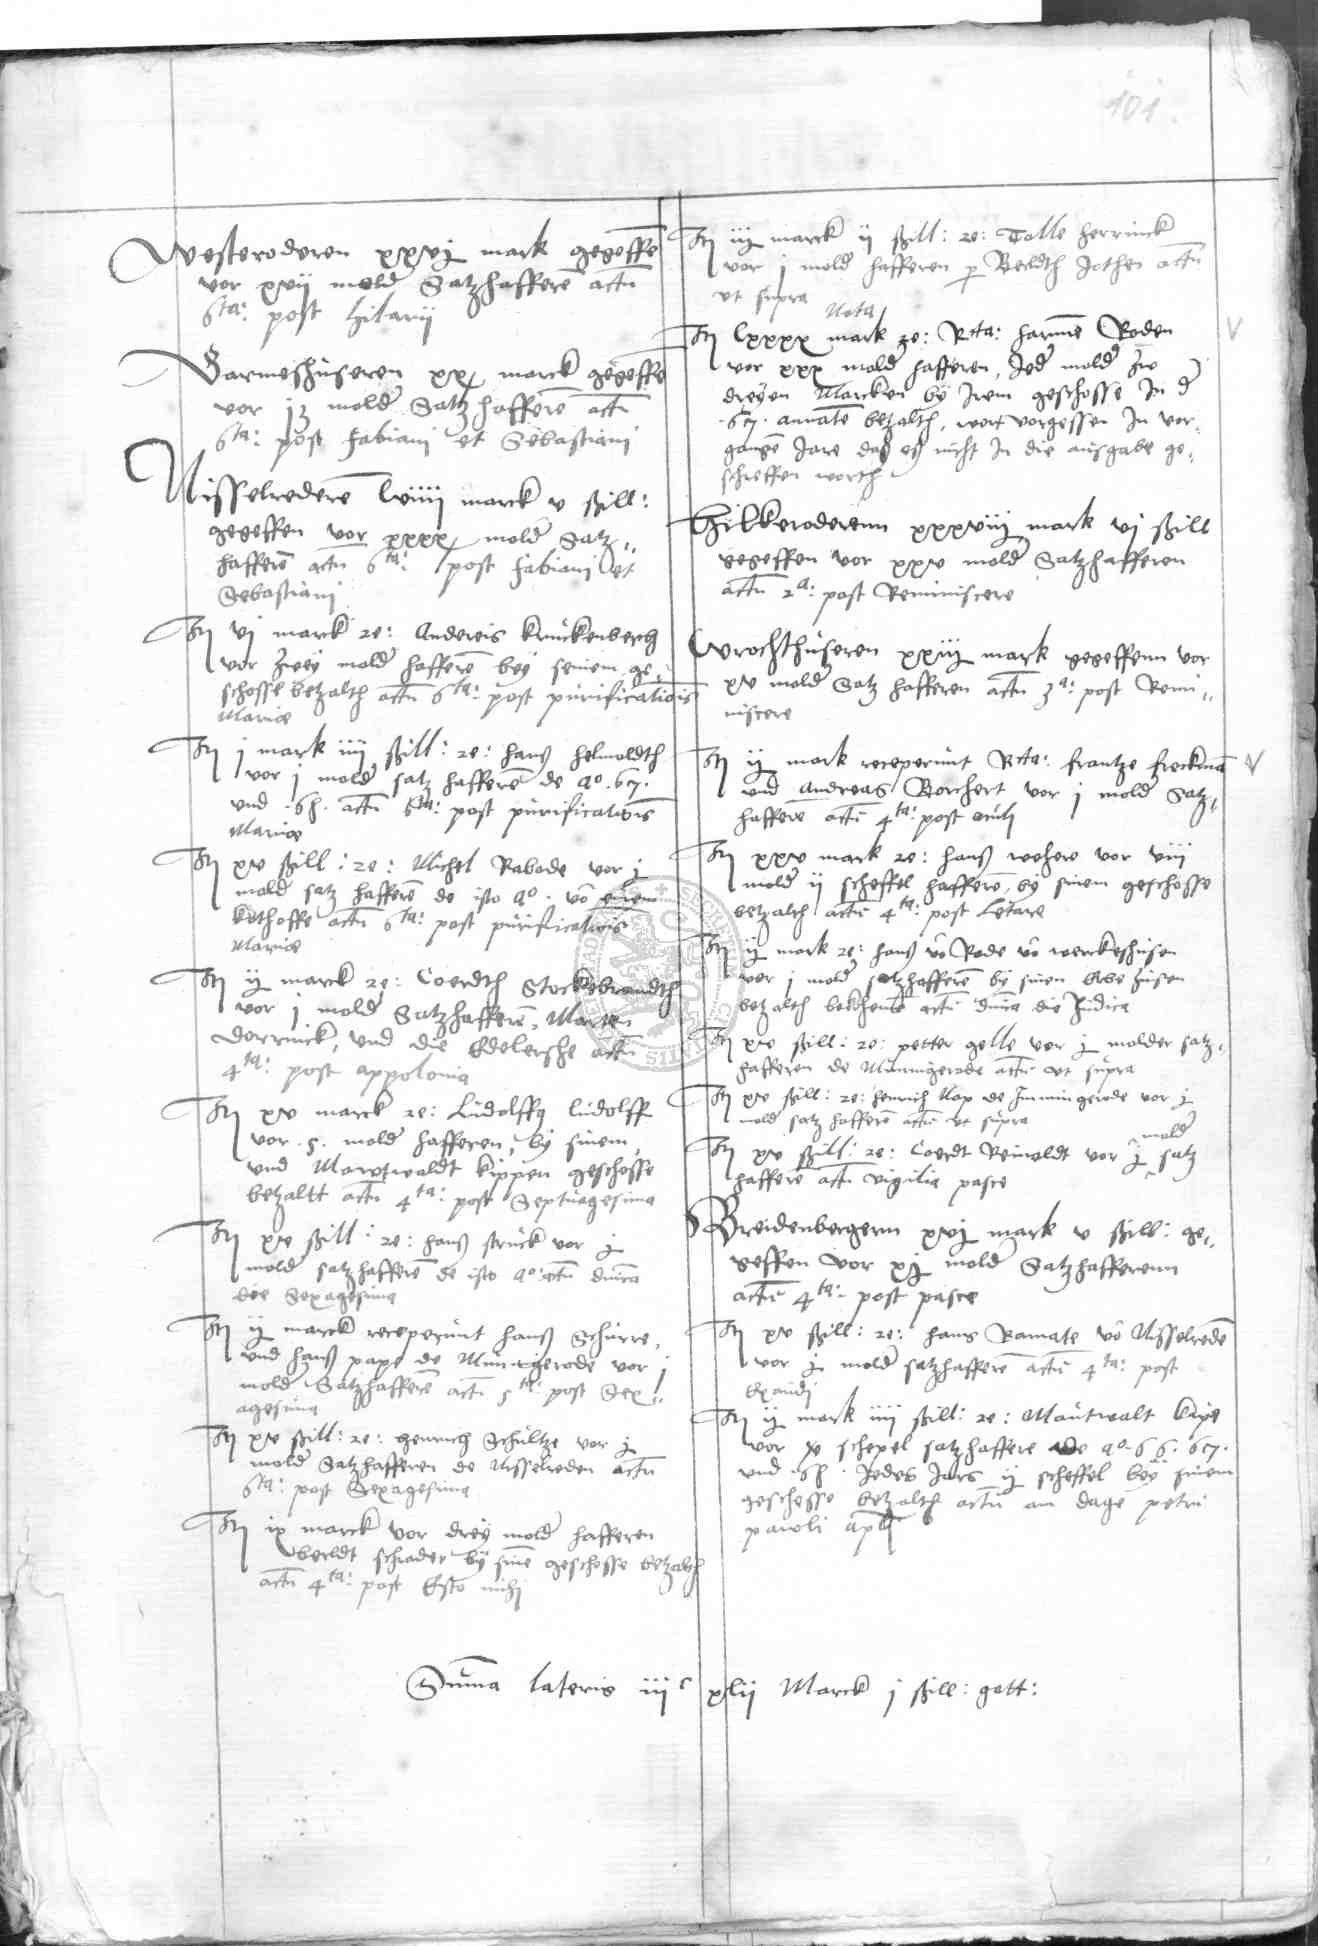 101.
Westeroderen xxvj mark gegeffen
vor xvij mold Satzhafferē actū
6ta: post hilarij
Germeshuseren xx mark gegeffē
vor mold Satz hafferē actū
6ta: post fabiani et Sebastiani
Nisselrederē lviiii marck v ßill:
gegeffen vor xxxx mold Satz
hafferē actū 6ta: post fabiani et
Sebastiani
It vj marck re: Andreis kruckenberch
vor zwey mold hafferē bey seinem ge
schosse betzalth actū 6ta: post purificationis
Marie
It j mark iiii ßill: re: hanß helmoldth
vor j mold satz hafferē de ao. 67.
und .68. actū 6ta: post purificationis
Marie
It xv ßill: re: Michel Rabode vor j
mold satz hafferē de isto ao. vō einem
kothoffe actū 6ta: post purificationis
Marie
It ij marck re: Coerdth Stockebrandth
vor j mold Satzhafferē, Marten
Dorrinck, und die Edelersche actū
4ta: post appolonia
It xv marck re: Ludolffg ludolff
vor .5. mold hafferen, by sinem
und Marxtwaldt kippen geschosse
betzaltt actū 4ta: post Septuagesima
It xv ßill: re: hanß struck vor j
mold satzhafferē de isto ao: actū dnica
die Sexagesima
It ij marck receperunt hanß Schurre,
und hanß pape de Mingerode vor j
mold Satzhafferē actū 5ta: post Sex
agesima
It xv ßill: re: henrich Schultze vor j
mold Satzhafferen de Nisselreden actū
6ta: post Sexagesima
It ix marck vor drey mold hafferen
berldt schrader by sinē geschosse betzalth
actū 4ta: post Esto mihj
It iij marck ij ßill: re: Tolle herrinck
vor j mold hafferen p Berldth Jothen actū
ut supra
Nota
It lxxxx mark re: Rcta: harmē Roden
vor xxx mold hafferen, Jed mold zu
dreyen Marcken by Irem geschosse In d
.67. annate betzalth, wort vorgessen In vor
gangē Jare daß eß nicht In die ausgabe ge
schreffen worth
Hilkeroderenn xxxviij mark vj ßill
gegeffen vor xxv mold Satzhafferen
actū 2a: post Reminiscere
Wrochthuseren xxiij mark gegeffenn vor
xv mold Satz hafferen actū 3a: post Remi
niscere
It ij mark receperunt Rcta: frantze freckman
und Andreas Borchert vor j mold Satz
hafferē actū 4ta: post oculi
It xxv mark re: hanß wehere vor viii
mold ij scheffel hafferē, by sinem geschosse
betzalth actū 4ta: post Letare
It ij mark re: hanß vō Rode vō werckeshusen
vor j mold satzhafferē by sinen Erbe Zinsen
betzalth actū dnica die Judica
It xv ßill: re: petter gelle vor j molder satz
hafferen de Minnigerode actū ut supra
It xv ßill: re: henrich Nax de Immingerode vor j
mold satz hafferē actū ut supra
It xv ßill: re: Coerdt Reinoldt vor j mold satz
hafferē actū vigilia pasce
Breidenbergern xvj mark v ßill: ge
geffen vor xj mold Satzhafferenn
actū 4ta: post pasce
It xv ßill: re: hans Ramate vō Nisselredē
vor j mold satzhafferē actū 4ta: post
Exaudj
It ij mark iiii ßill: re: Mautwalt kipe
vor schepel satzhaffere de ao. 66. 67.
und .68. Jedes Jars ij scheffel bey sinem
geschosse betzalth actū am dage petri
pauli apli
Sūma lateris iiic xlij Marck j ßill: gott: